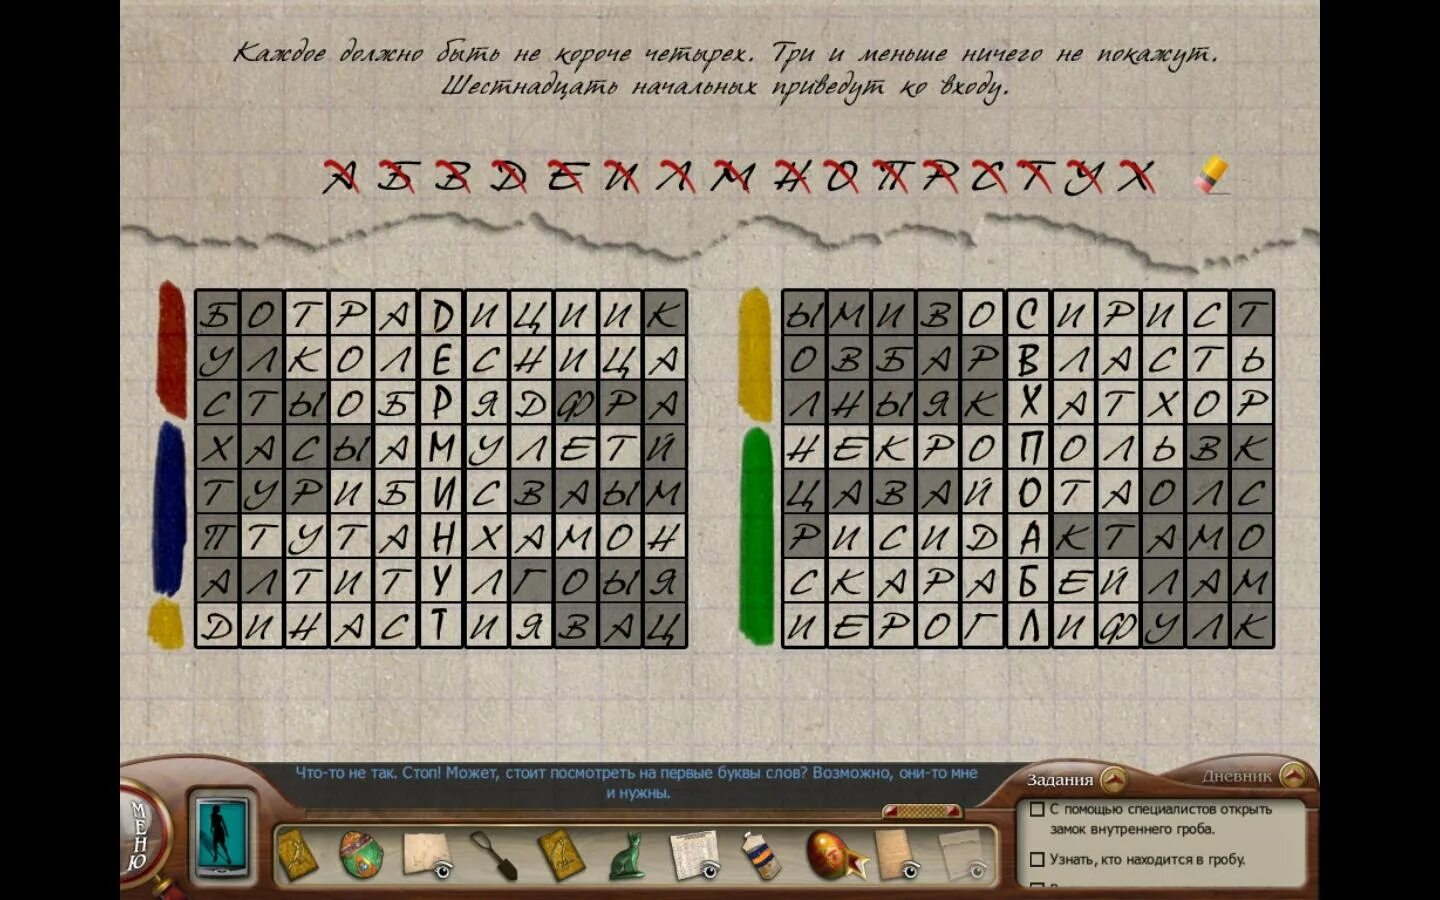 Каждое должно быть не короче четырех. Три и меньше ничего не покажут.
Шестнадцать начальных приведут ко входу.
А Б В Д Е И Л М Н О П Р С Т У Х
Б О Т Р А D И Ц И И К
У Л К О Л Е С Н И Ц А
С Т Ы О Б Р Я Д Ф Р А
Х А С Ы А М У Л Е Т Й
Т У Р И Б И С В А Ы М
П Т У Т А Н Х А М О Н
А Л Т И Т У Л Г О Ы Я
Д И Н А С Т И Я В А Ц
Ы М И В О С И Р И С Т
О В Б А Р В Л А С Т Ь
Л Н Ы Я К Х А Т Х О Р
Н Е К Р О П О Л Ь В К
Ц А В А Й О Т А О Л С
Р И С И Д А К Т А М О
С К А Р А Б Е Й Л А М
И Е Р О Г Л И Ф У Л К
Что-то не так. Стоп! Может, стоит посмотреть на первые буквы слов? Возможно, они-то мне
и нужны.
МЕНЮ
Задания
Дневник
С помощью специалистов открыть
замок внутреннего гроба.
Узнать, кто находится в гробу.